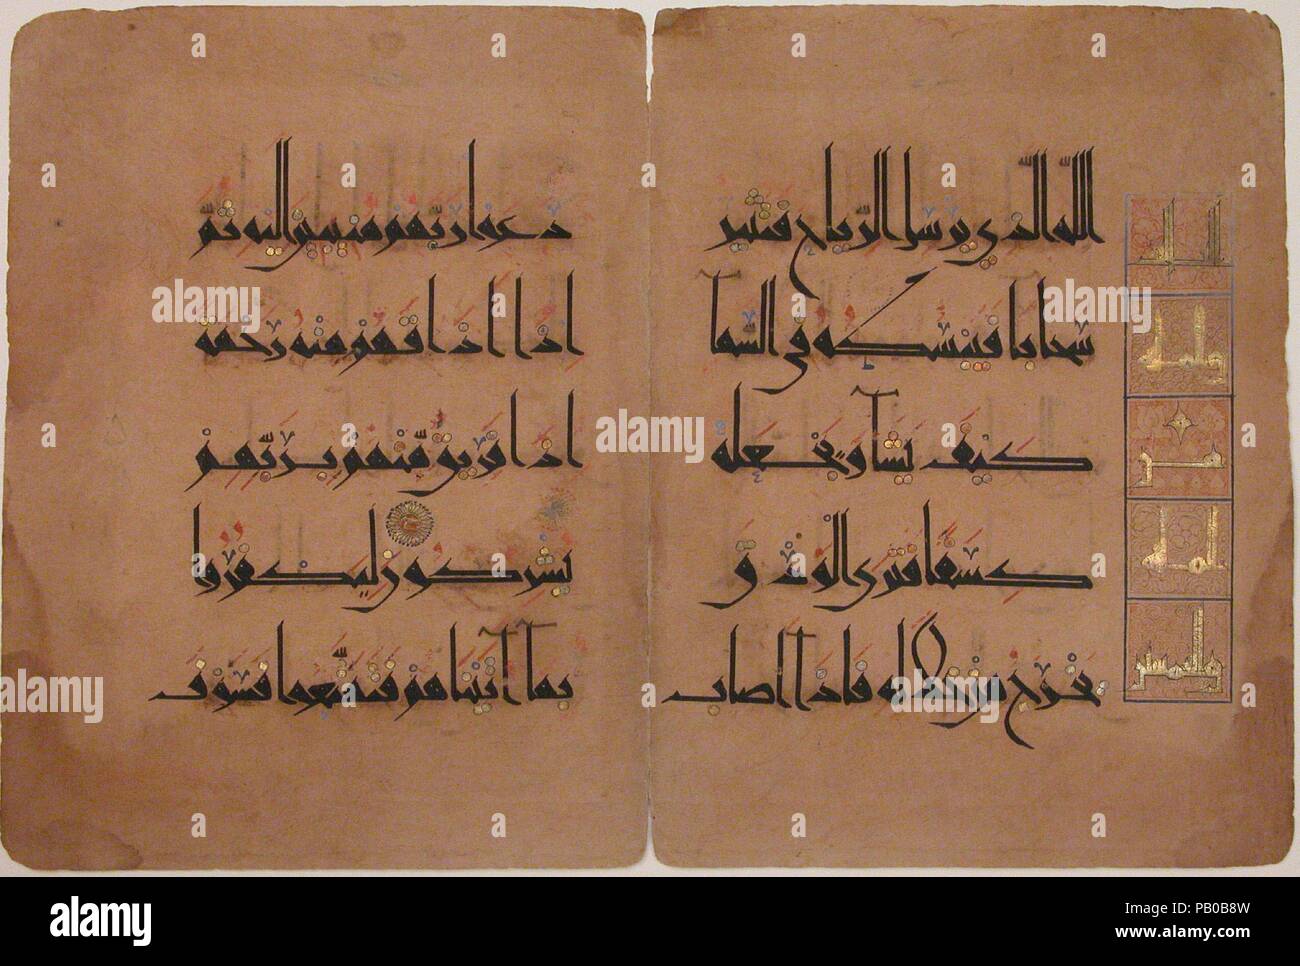 الله الذي يرسل الرياح فتثير
سحابا فيبسطه في السمآ
كيف يشآ ويجعله
كسفا فترى الودق
يخرج من خلاله فاذا اصاب
دعوا ربهم منيبين اليه ثم
اذا اذاقهم منه رحمة
اذا فريق منهم بربهم
يشركون ليكفروا
بمآ آتيناهم فتمتعوا فسوف
alamy
alamy
Image ID: PB0B8W
www.alamy.com